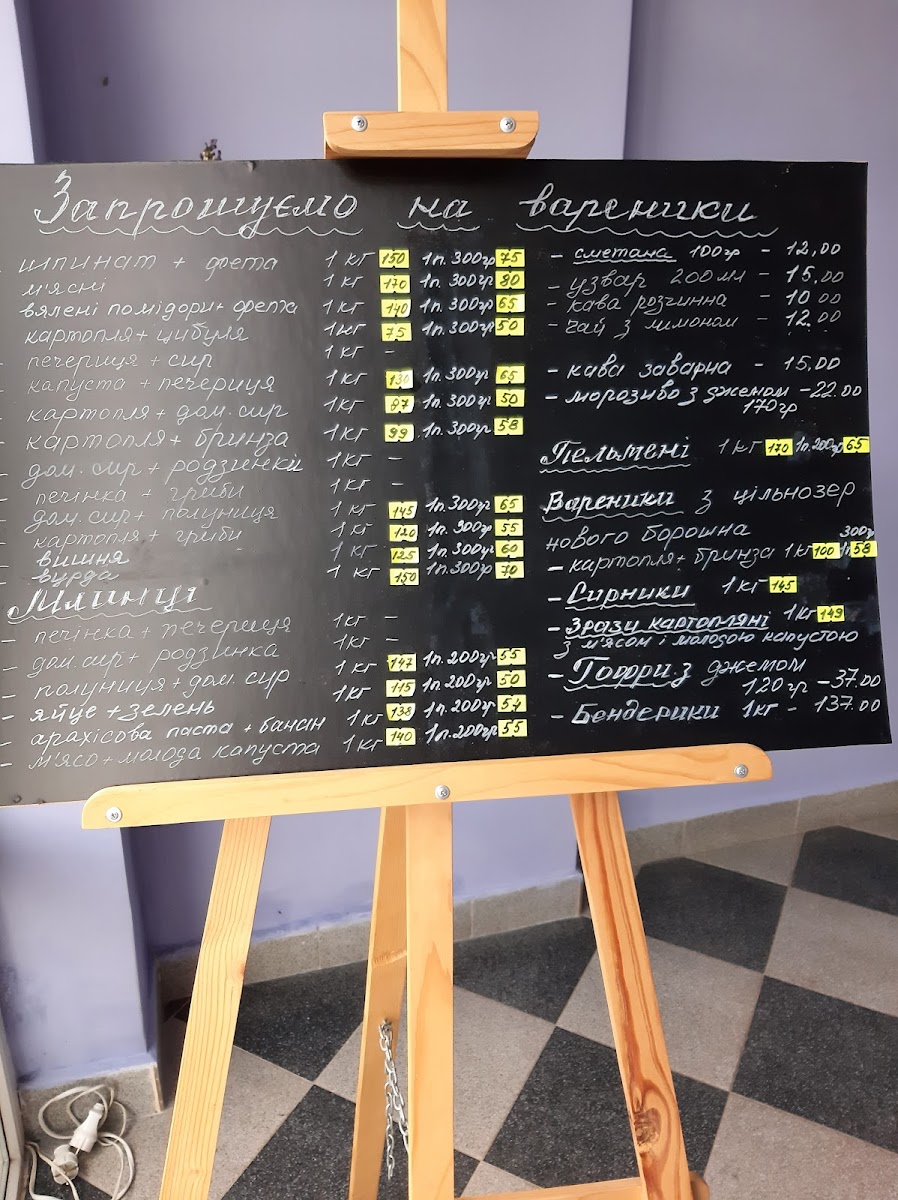 Запрошуємо на вареники
- шпинат + фета 1 кг 150 1п. 300гр 75
м'ясні 1 кг 170 1п. 300гр 80
вялені помідори+ фета 1 кг 140 1п. 300гр 65
картопля+ цибуля 1кг 75 1п. 300гр 50
печериця + сир 1 кг -
- капуста + печериця 1кг 130 1п. 300гр 65
- картопля + дом. сир 1кг 87 1п. 300гр 50
- картопля+ бринза 1кг 99 1п. 300гр 58
- дом. сир + родзинки 1кг -
- печінка + гриби 1кг -
- дом. сир+ полуниця 1кг 145 1п.300гр 65
- картопля + гриби 1кг 120 1п. 300гр 55
- вишня 1 кг 125 1п.300гр 60
- вурда 1 кг 150 1п.300гр 70
Млинці
- печінка + печериця 1кг -
- дом. сир + родзинка 1кг -
- полуниця + дом. сир 1кг 147 1п.200гр 55
- яйце + зелень 1кг 115 1п.200гр 50
- арахісова паста + банан 1кг 138 1п.200гр 54
- м'ясо + молода капуста 1кг 140 1п.200гр 55
- сметана 100гр - 12,00
- узвар 200мл - 15,00
- кава розчинна - 10 00
- чай з лимоном - 12.00
- кава заварна - 15,00
- морозиво з джемом - 22.00
170гр
Пельмені 1 кг 170 1п. 200гр 65
Вареники з цільнозер
нового борошна 300гр
- картопля+ бринза 1кг 100 1п 58
- Сирники 1 кг 145
- Зрази картопляні 1кг 149
з м'ясом і молодою капустою
- Гофри з джемом
120гр - 37.00
- Бендерики 1кг - 137.00